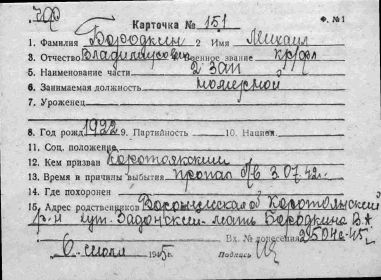 Карточка № 151
Ф. №1
1. Фамилия Бородкин 2 Имя Михаил
3. Отчество Владимирович Военное звание кр/фл
5. Наименование части 2 ЗАП
6. Занимаемая должность номерной
7. Уроженец
8. Год рожд. 1922 9. Партийность 10. Национ.
11. Соц. положение
12. Кем призван Коротоякский
13. Время и причины выбытия пропал б/в 3.07.42 г.
14. Где похоронен
15. Адрес родственников Воронежская об Коротоякский
р-н хут. Задонский - мать Бородкина В.А
Вх. № донесения 29504с-45
6 июля 1945г.
Подпись